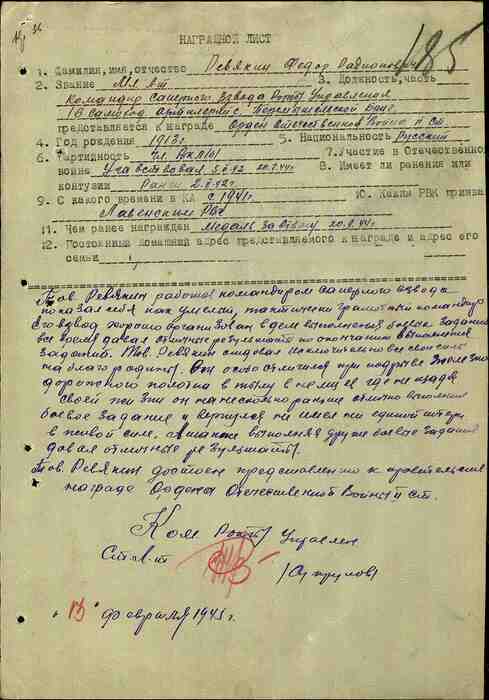 185
НАГРАДНОЙ ЛИСТ
1. Фамилия, имя, отчество Ревякин Федор
2. Звание Мл л-т 3. Должность, часть
Командир Саперного Взвода Роты Управления
16 самоход.
представляется к награде Орден Отечественной Войны II ст
4. Год рождения 1913г. 5. Национальность Русский
6. Партийность 7. Участие в Отечественной
войне Участвовал 8. Имеет ли ранения или
контузии Ранен
9. С какого времени в КА с 1941г 10. Каким РВК призва
РВК
11. Чем ранее награжден Медаль За отвагу
12. Постоянный домашний адрес представляемого к награде и адрес его
семьи
Тов. Ревякин работая командиром саперного взвода
показал себя как умелый, тактически грамотный командир
Его взвод хорошо организован в деле выполнения боевых задании
все время давал отличные результаты по окончанию выполнения
заданий. Тов. Ревякин отдавал исключительно все свои силы
на благо родины. Он особо отличился при подрыве железно
дорожного полотна в тылу в немцев где не щадя
своей жизни он отлично выполнил
боевое задание и вернулся не имея ни единой потери
в живой силе, выполняя другие боевые задания
давал отличные результаты.
Тов. Ревякин достоин представлению к правительствен
награде Ордена Отечественной Войны II ст.
Ком Роты Управлен
Ст. л-т
"13" февраля 1945г.